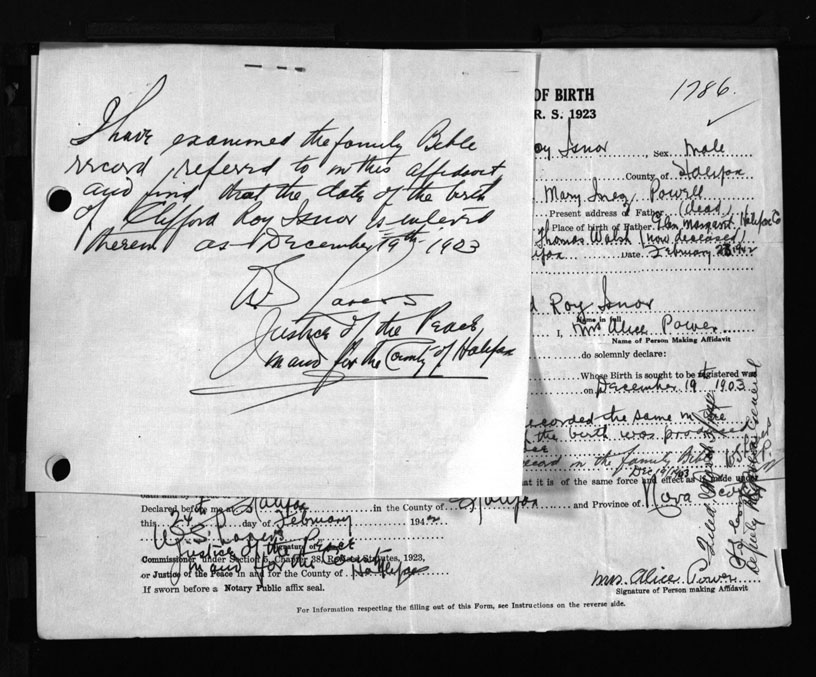 I have examined the family Bible
record referred to in this affidavit
and find that the date of the birth
of Clifford Roy Isnor is entered
therein as December 19th 1903
Justice of the Peace
in and for the County of Halifax
OF BIRTH
R. S. 1923
1786.
Roy Isnor, Sex Male
County of Halifax
Mary Inez Powell
Present address of Father (dead)
Place of birth of Father Halifax Co
Thomas Walsh (now deceased)
Date February
Roy Isnor
Name in full
I, Mrs Alice Power
Name of Person Making Affidavit
do solemnly declare:
Whose Birth is sought to be registered was
on December 19th 1903
recorded the same in the
the birth was
record on the family Bible
Dec 19/1903
it is of the same force and effect as if made under
Declared before me at Halifax in the County of Halifax and Province of Nova
this 24th day of February 194
Signature of
Justice of the Peace
Commissioner under Section 5, Chapter 38, Revised Statutes, 1923,
in and for the
or Justice of the Peace in and for the County of Halifax
If sworn before a Notary Public affix seal.
Mrs. Alice Power
Signature of Person making Affidavit
For Information respecting the filling out of this Form, see Instructions on the reverse side.
Filed
Deputy Registrar General